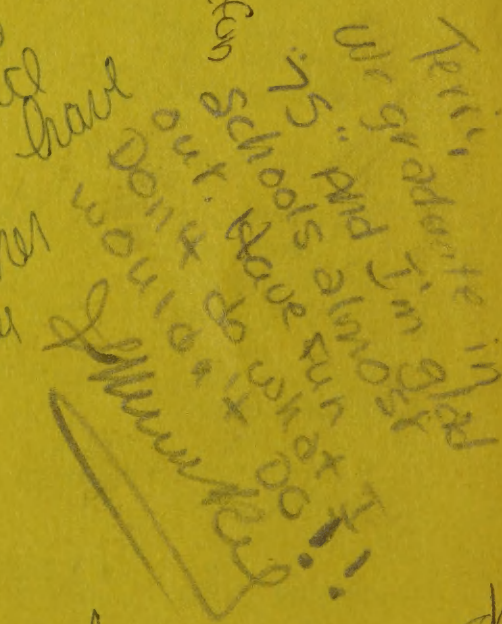 have
fun
Terri,
We graduate in
"75" And I'm glad
Schools almost
out. Have Fun
Don't do what I
would't DO!!